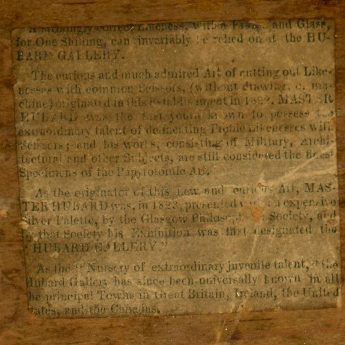 A strikingly correct Likeness, with a Frame and Glass,
for One Shilling, can invariably be relied on at the HU-
BARD GALLERY.
The curious and much admired Art of cutting out Like-
nesses with common Scissors, (without drawing, or ma-
chine) originated in this Establishment in 1822. MASTER
HUBARD was the first youth known to possess the
extraordinary talent of delineating Profile Likenesses with
Scissors; and his works, consisting of Military, Archi-
tectural and other Subjects, are still considered the finest
Specimens of the Papyrotomic Art.
As the originator of this new and curious Art, MAS-
TER HUBARD was, in 1823, presented with an expensive
Silver Palette, by the Glasgow Society, and
by that Society his Exhibition was first designated the
"HUBARD GALLERY."
As the "Nursery of extraordinary juvenile talent," the
Hubard Gallery has since been universally known in all
the principal Towns in Great Britain, Ireland, the United
States, and the Canadas.